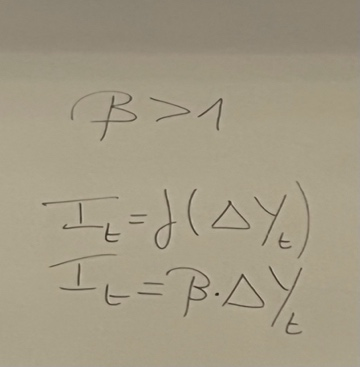 β > 1
I_t = f(ΔY_t)
I_t = β · ΔY_t